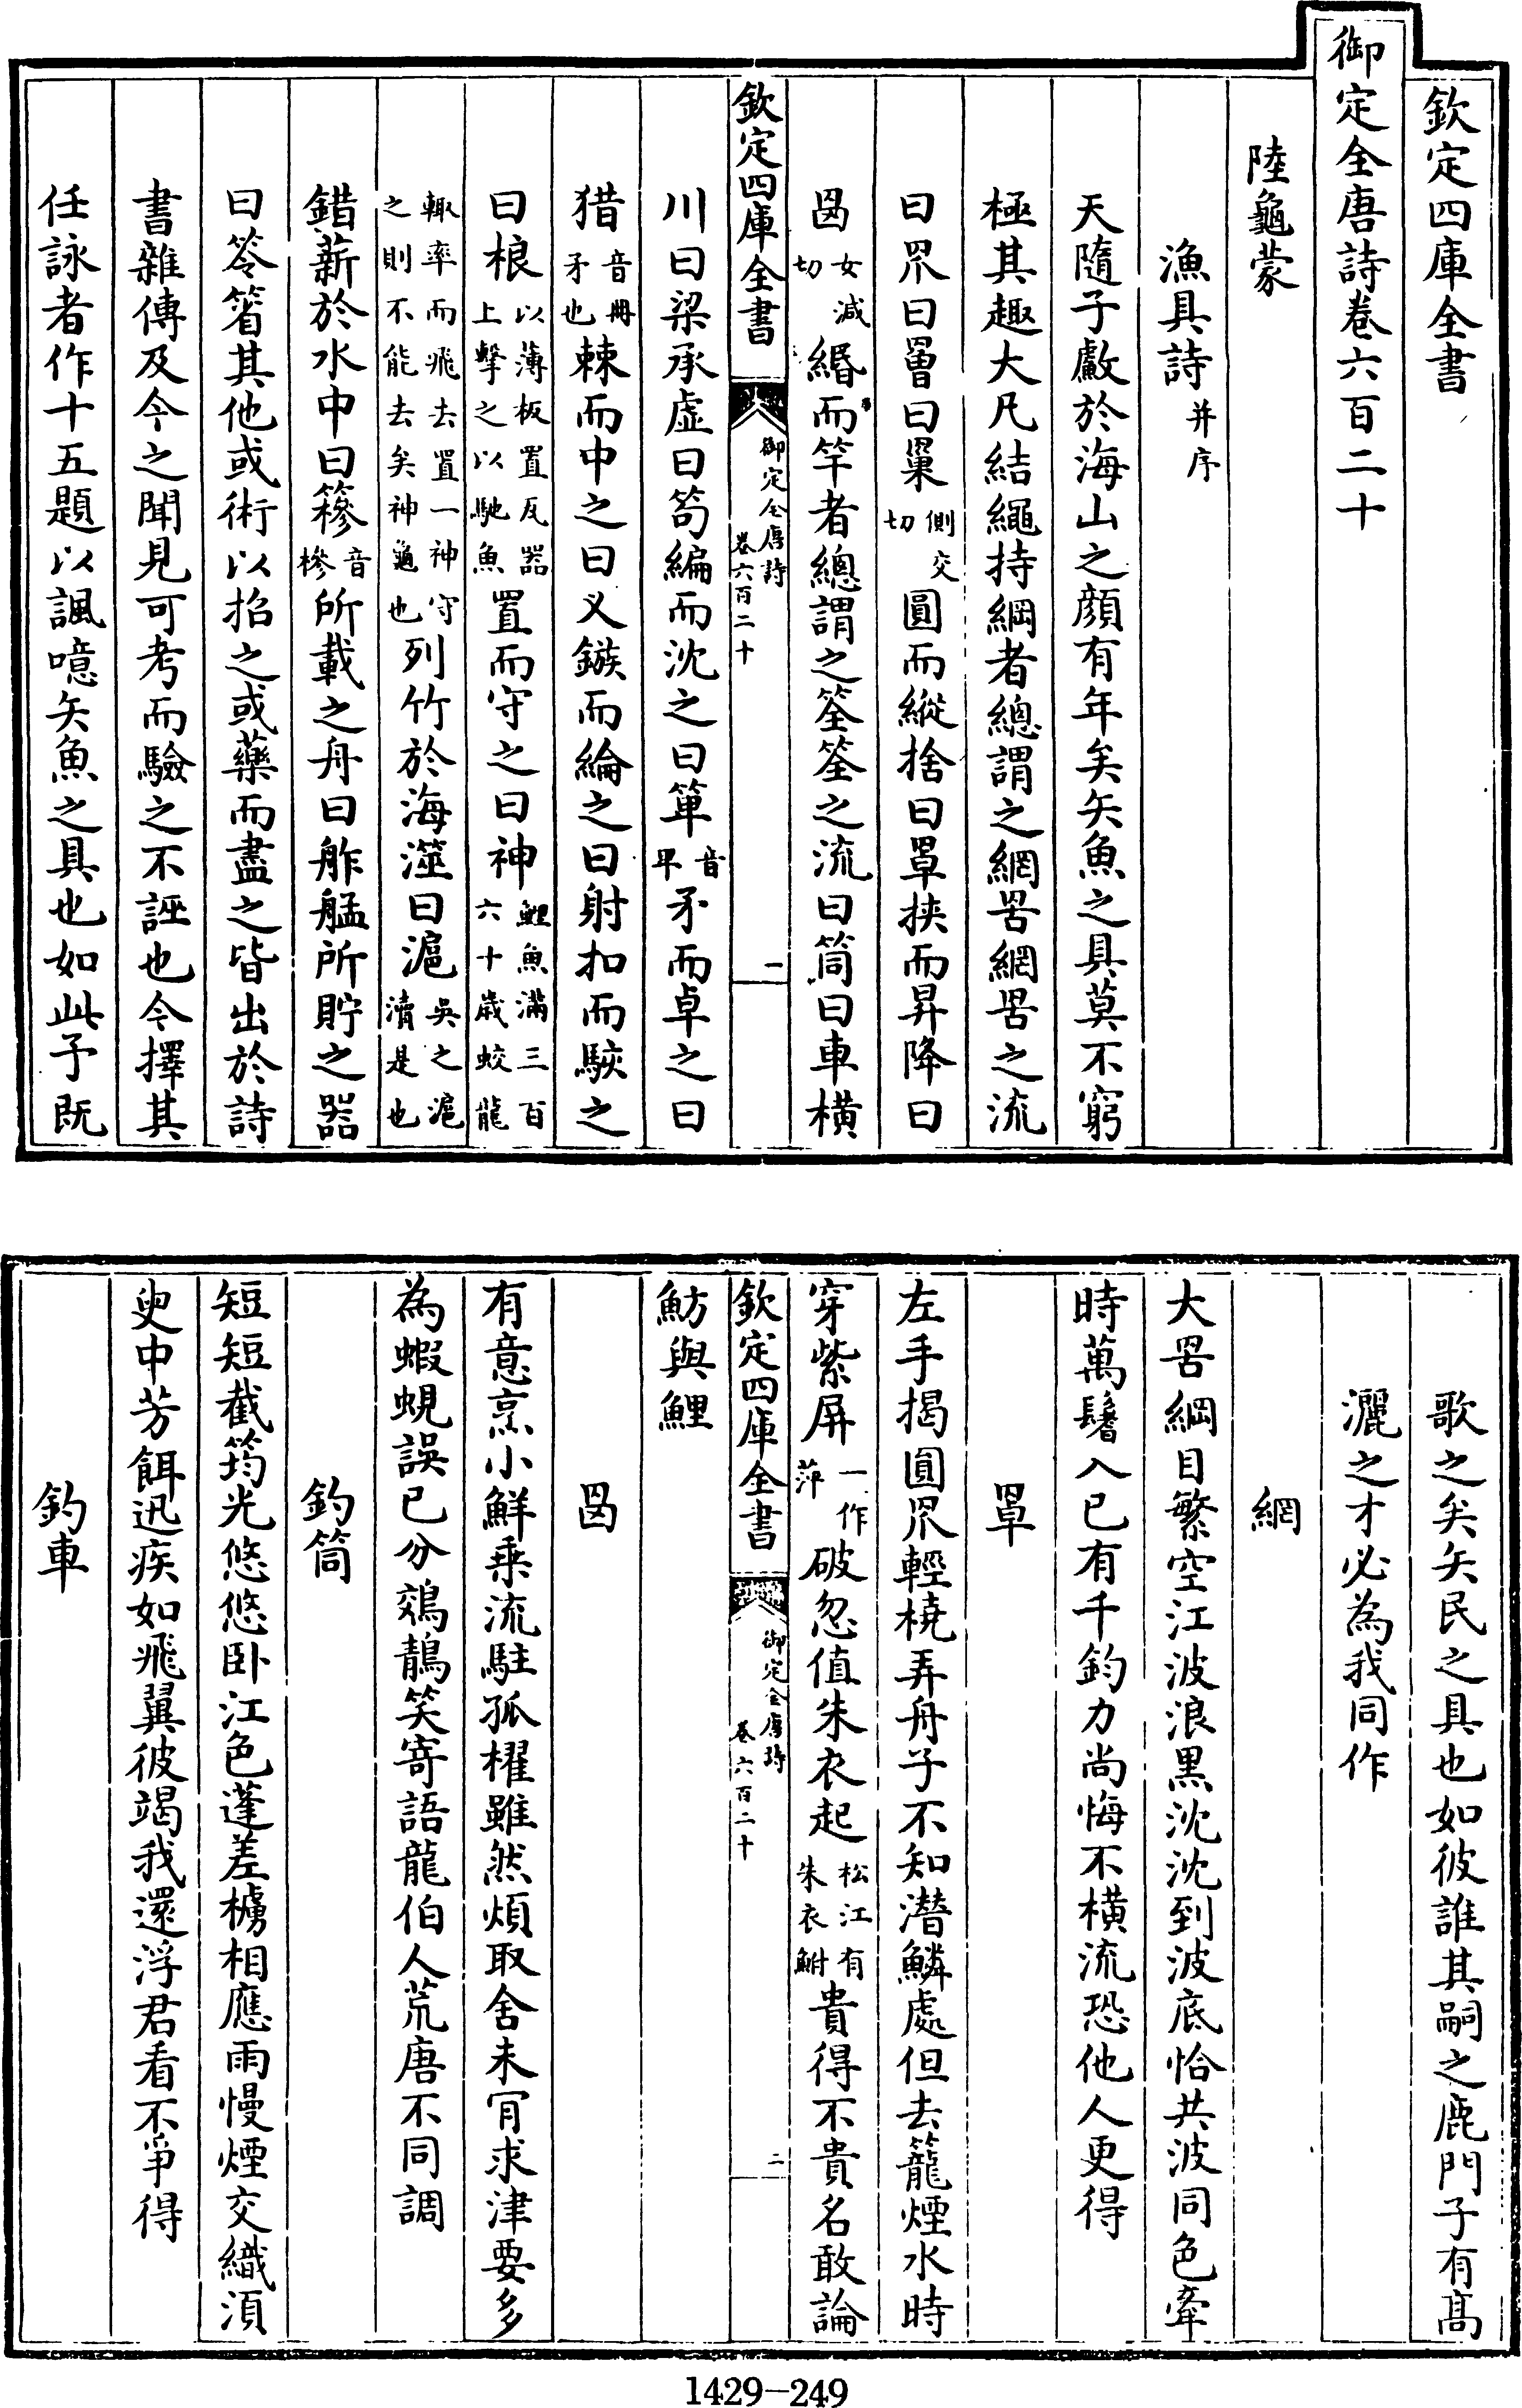 欽定四庫全書
御定全唐詩卷六百二十
陸龜蒙
漁具詩并序
天隨子㱆於海山之顔有年矣矢魚之具莫不窮
極其趣大凡結繩持綱者總謂之網罟網罟之流
曰罛曰罾曰罺側交切圓而縱捨曰罩挾而昇降曰
𦊁女減切緡而竿者總謂之筌筌之流曰筒曰車橫
欽定四庫全書 御定全唐詩卷六百二十 一
川曰梁承虛曰笱編而沈之曰箄音卑矛而卓之曰
猎音冊矛也棘而中之曰乂鏃而綸之曰射扣而駭之
曰桹以薄板置瓦器上擊之以馳魚置而守之曰神鯉魚滿三百六十歲蛟龍
輒率而飛去置一神守之則不能去矣神龜也列竹於海澨曰滬吳之滬瀆是也
錯薪於水中曰䅟音槮所載之舟曰舴艋所貯之器
曰笭箵其他或術以招之或藥而盡之皆出於詩
書雜傳及今之聞見可考而驗之不誣也今擇其
任詠者作十五題以諷噫矢魚之具也如此予既
歌之矣矢民之具也如彼誰其嗣之鹿門子有高
灑之才必為我同作
網
大罟綱目繁空江波浪黒沈沈到波底恰共波同色牽
時萬鬐入已有千鈞力尚悔不橫流恐他人更得
罩
左手揭圓罛輕橈弄舟子不知潛鱗處但去籠煙水時
穿紫屏一作萍破忽值朱衣起松江有朱衣鮒貴得不貴名敢論
欽定四庫全書 御定全唐詩卷六百二十 二
魴與鯉
𦊁
有意烹小鮮乗流駐孤櫂雖然煩取舍未肎求津要多
為蝦蜆誤已分鵁鶄笑寄語龍伯人荒唐不同調
釣筒
短短截筠光悠悠臥江色蓬差櫋相應雨慢煙交織湏
臾中芳餌迅疾如飛翼彼竭我還浮君看不爭得
釣車
1429-249